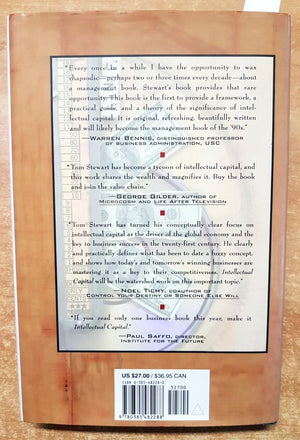 "Every once in a while I have the opportunity to wax
rhapsodic—perhaps two or three times every decade—about
a management book. Stewart's book provides that rare
opportunity. This book is the first to provide a framework, a
practical guide, and a theory of the significance of intel-
lectual capital. It is original, refreshing, beautifully written
and will likely become the management book of the '90s."
—WARREN BENNIS, DISTINGUISHED PROFESSOR
OF BUSINESS ADMINISTRATION, USC
"Tom Stewart has become a tycoon of intellectual capital, and
this work shares the wealth and magnifies it. Buy the book
and join the value chain."
—GEORGE GILDER, AUTHOR OF
MICROCOSM AND LIFE AFTER TELEVISION
"Tom Stewart has turned his conceptually clear focus on
intellectual capital as the driver of the global economy and the
key to business success in the twenty-first century. He clearly
and practically defines what has been to date a fuzzy concept,
and shows how today's and tomorrow's winning businesses are
mastering it as key to their competitiveness. Intellectual
Capital will be the watershed work on this important topic."
—NOEL TICHY, COAUTHOR OF
CONTROL YOUR DESTINY OR SOMEONE ELSE WILL
"If you read only one business book this year, make it
Intellectual Capital."
—PAUL SAFFO, DIRECTOR,
INSTITUTE FOR THE FUTURE
US $27.00 / $36.95 CAN
ISBN 0-385-48228-0
52700
9 780385 482288